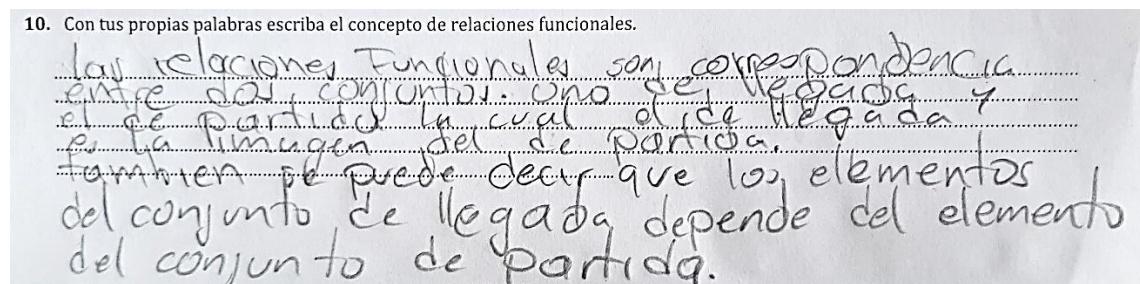 10. Con tus propias palabras escriba el concepto de relaciones funcionales.
las relaciones Funcionales son correspondencia
entre dos conjuntos. Uno de llegada y
el de partida la cual el de llegada
es la imagen del de partida.
tambien se puede decir que los elementos
del conjunto de llegada depende del elemento
del conjunto de partida.